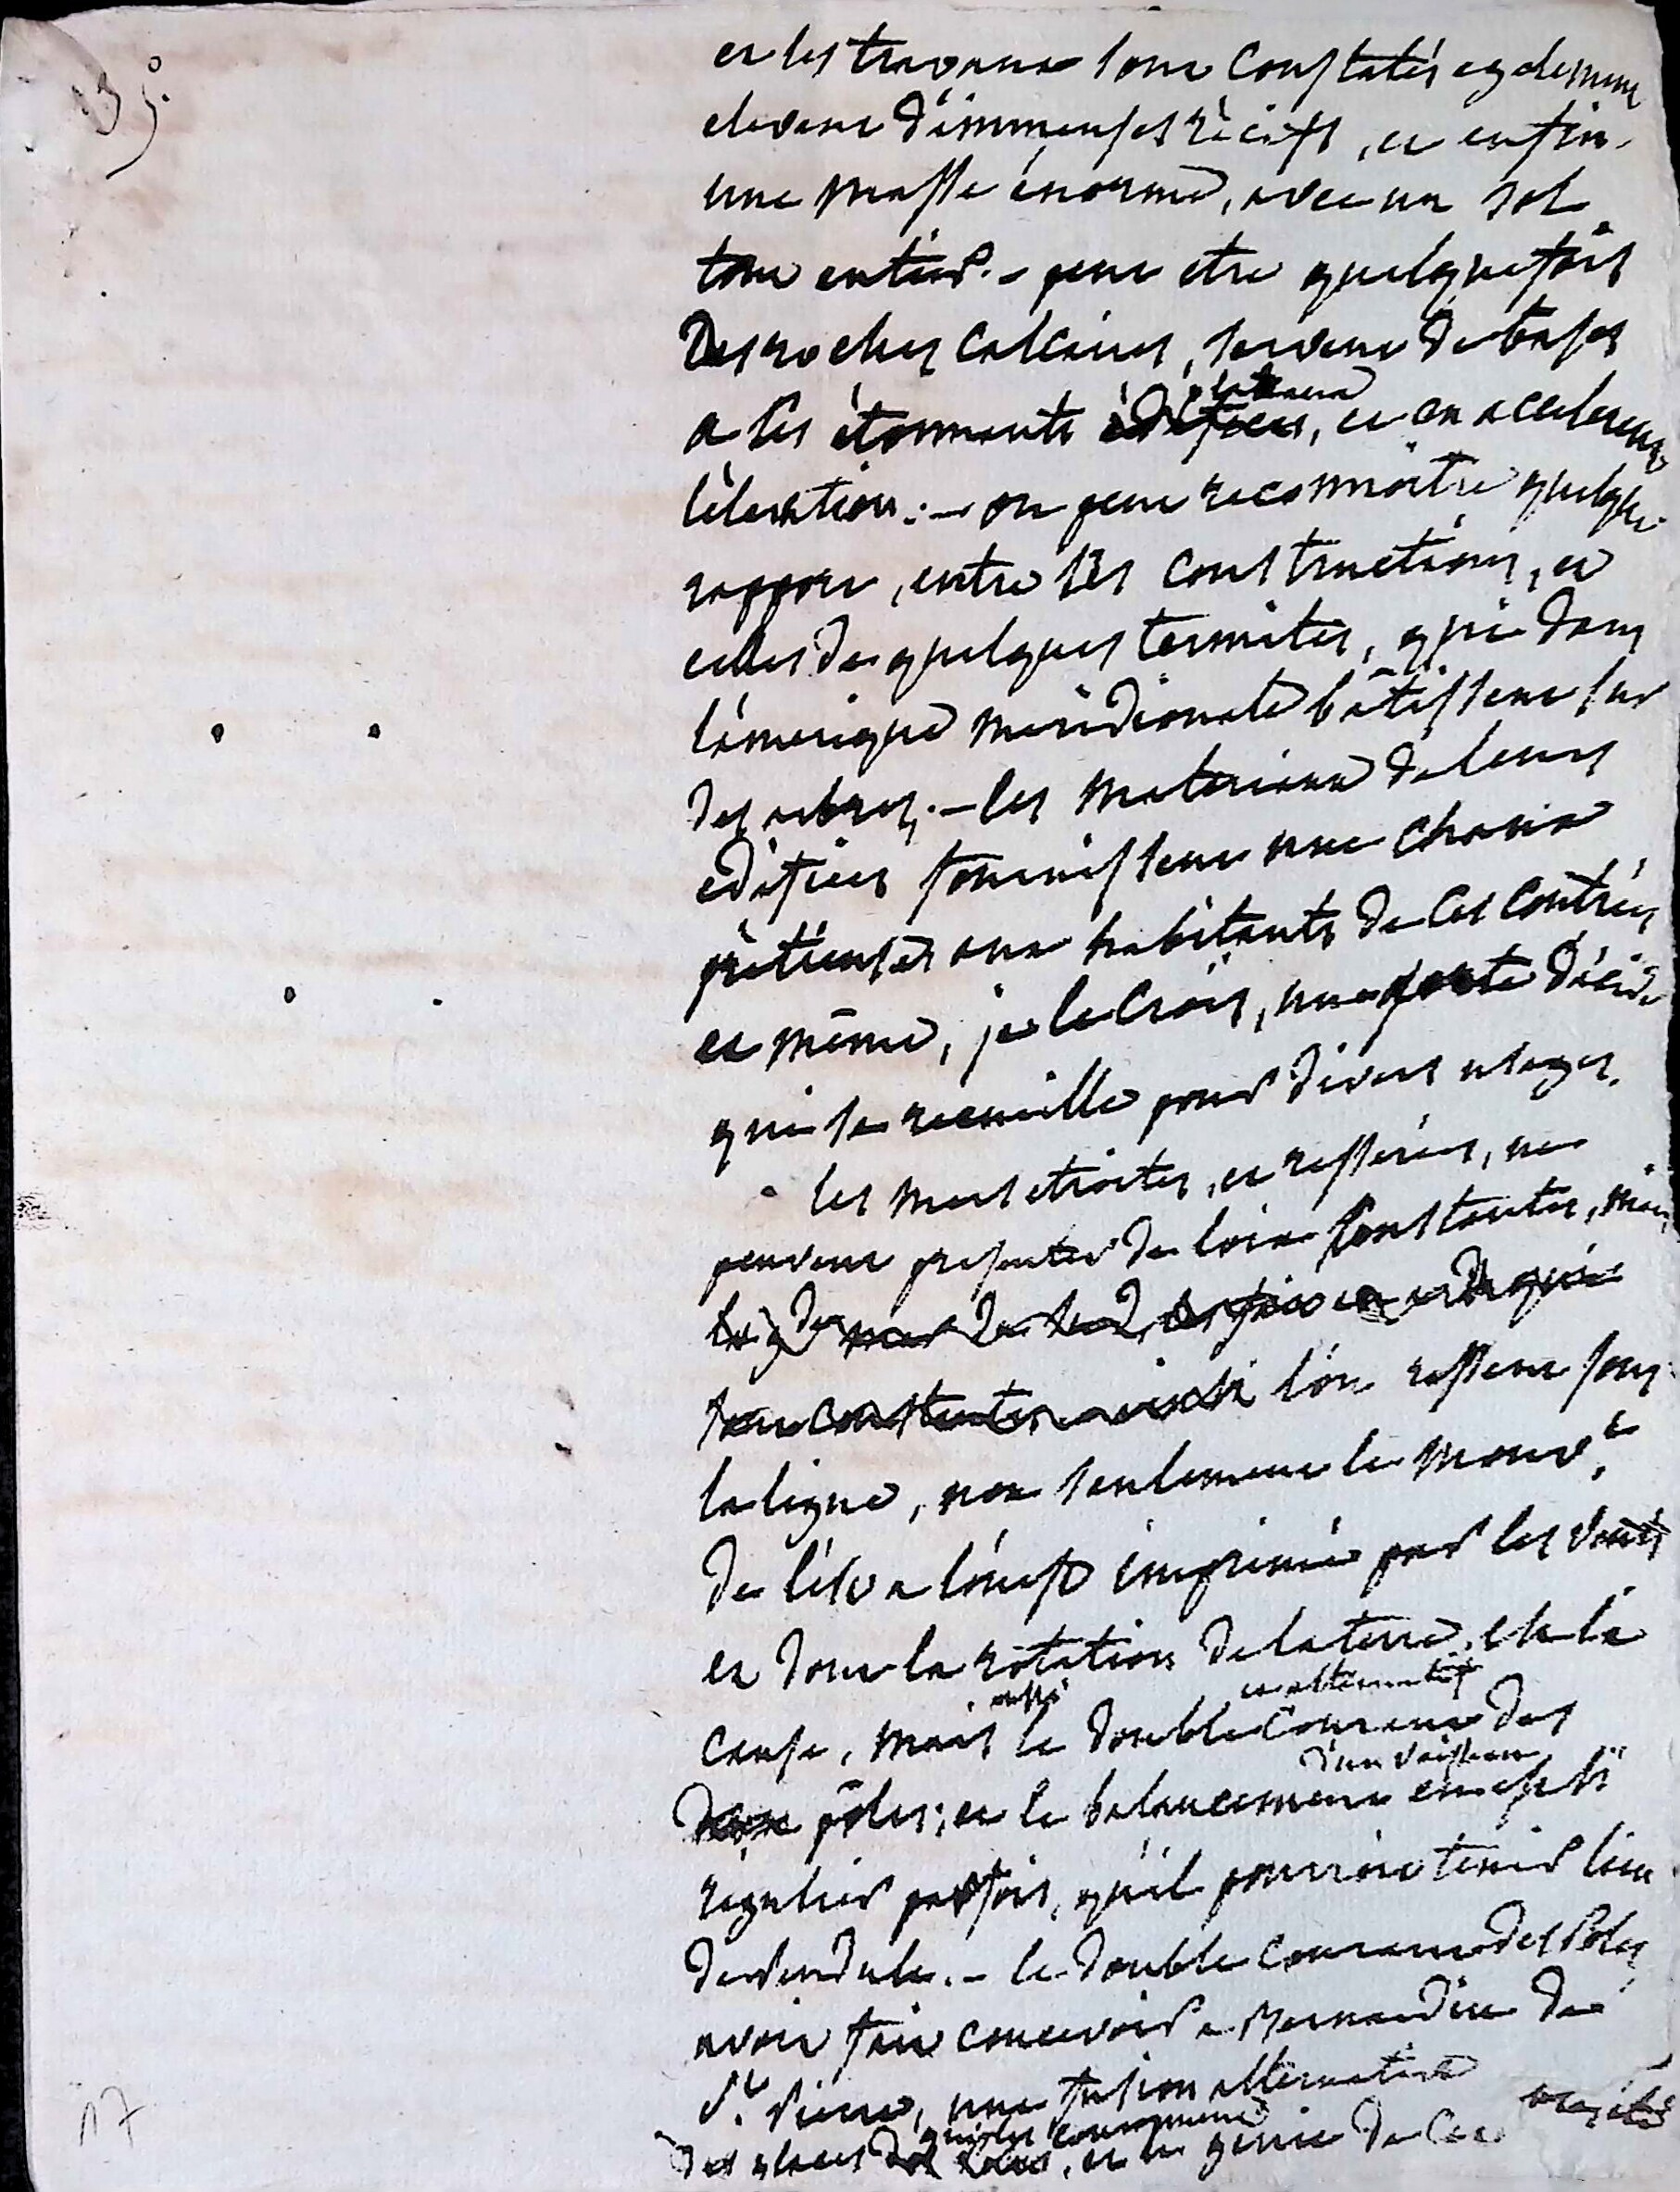 13 j.
et les travaux sont constatés egalement
elevent d'immenses récifs, et enfin
une masse énorme, avec un sol
tout entier. – peut etre quelquefois
des roches calcaires, servent de bases
a ces étonnants édifices, et en accelerent
l'élévation. – on peut reconnoitre quelque
rapport, entre ses constructions, et
celles de quelques termites, qui dans
l'amerique meridionale bâtissent sur
des arbres. – les materiaux de leurs
edifices fournissent une chaux
prétieuses aux habitants de ces contrées
et même, je le crois, une sorte d'acide
qui se recueille pour divers usages.
les mers etroites, et resserées, ne
peuvent presenter de loix constantes, mais
l'on ressent sous
la ligne, non seulement le mouvt.
de l'est a l'ouest imprimé par les vents
et dont la rotation de la terre, est la
aussi et alternatif
cause, mais le double courant des
d'un vaisseau
deux pôles; et le balancement en est si
régulier parfois, qu'il pourroit tenir lieu
de Pendule. – le double courant des Poles
avoit fait concevoir a Bernardin de
St. Pierre, une fusion alternative
qui les couronnent
des glaces, et le genie de ce
17